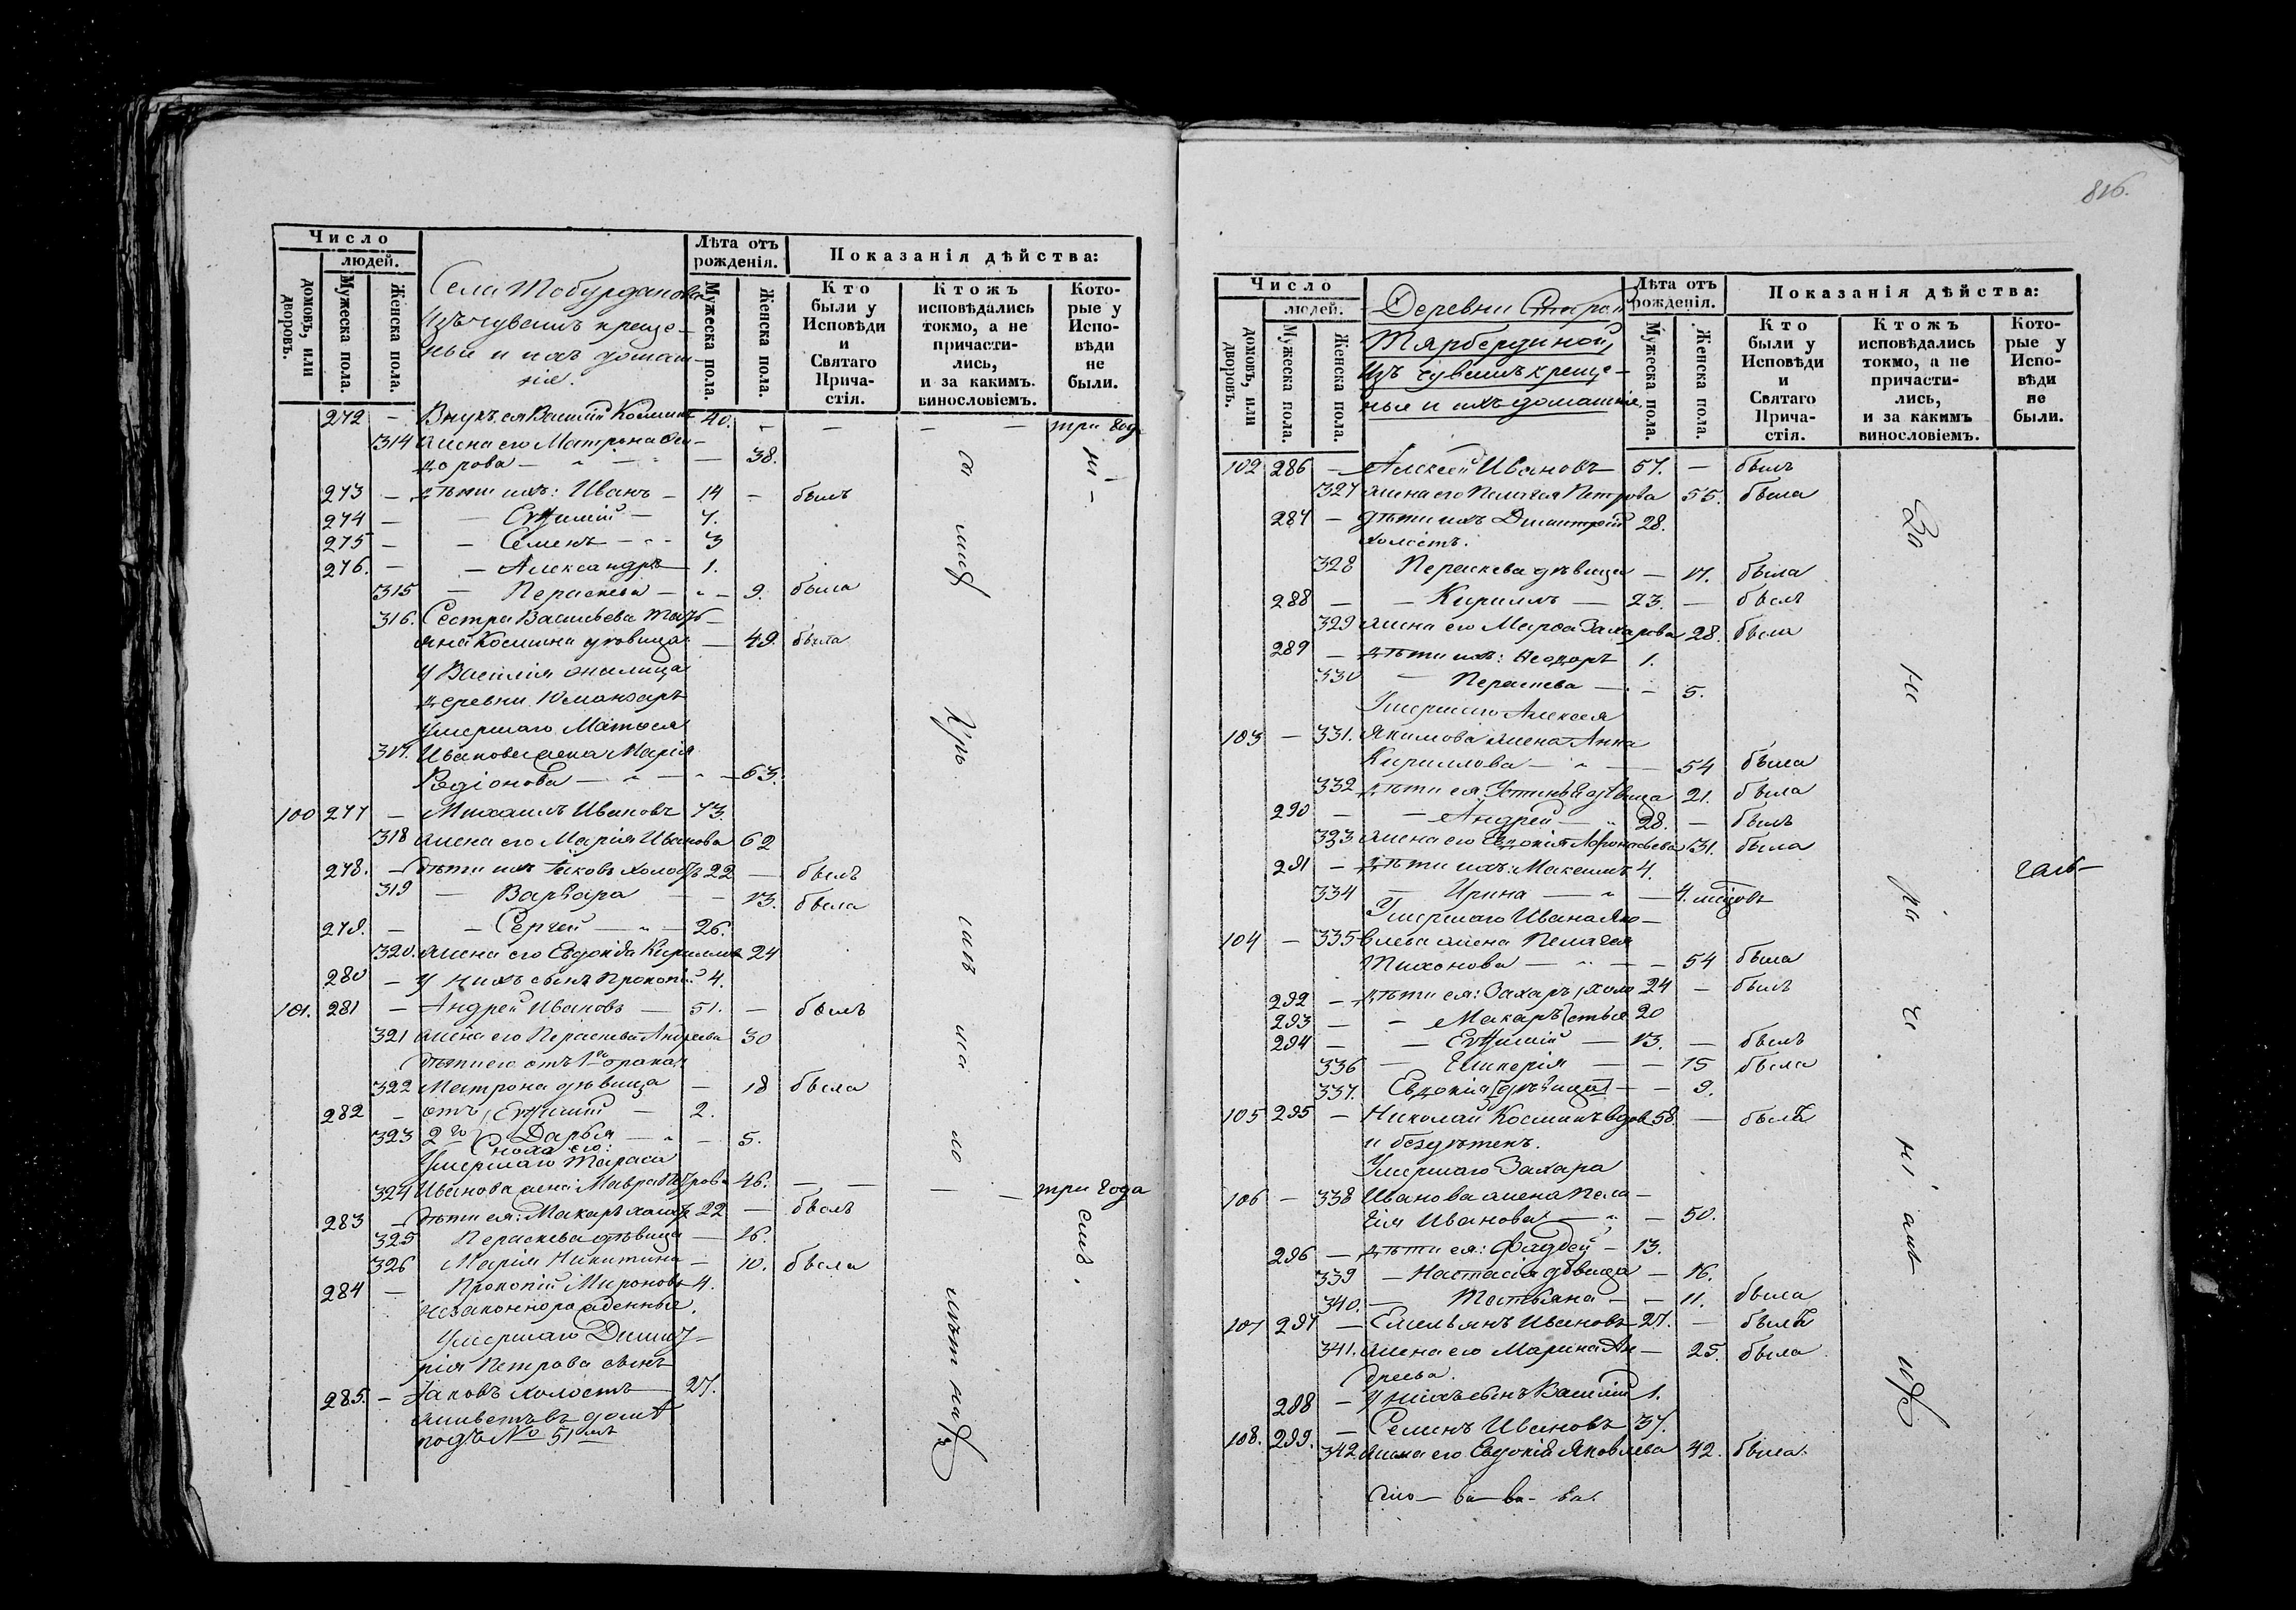 Число
людей.
домовъ, или дворовъ.
Мужеска пола.
Женска пола.
Села Тобурданова
Изъ чувашъ креще-
ные и ихъ домаш-
нія.
Лѣта отъ рожденія.
Мужеска пола.
Женска пола.
Показанія дѣйства:
Кто были у Исповѣди и Святаго Прича-стія.
Ктожъ исповѣдались токмо, а не причасти-лись, и за какимъ. винословіемъ.
Кото-рые у Испо-вѣди не были.
272 — Внукъ ея Василій Косминъ 40. — — — — три год
314 жена его Матрона Ѳео-
дорова — — 38.
273 — дѣти ихъ: Иванъ — 14 — былъ
274 — — Евѳимій — 7.
275 — — Семенъ — 3
276. — — Александръ 1.
315 — Параскева — 9. была
316. Сестра Васильева Тать-
яна Космина дѣвица — 49. была
У Василія жилица
деревни Юманзаръ
Умершаго Матѳея
317. Иванова жена Марія
Родіонова — 63.
100 277 — Михаилъ Ивановъ 73.
318 жена его Марія Иванова 62
278. — Дѣти ихъ Яковъ холостъ 22 — былъ
319 — Варвара — — 13. была
279. — — Сергей — 26.
320. жена его Евдокія Кирилова 24
280 — У нихъ сынъ Прокопій 4.
101. 281 — Андрей Ивановъ — 51. — былъ
321 жена его Параскева Андреева 30
Дѣти его отъ 1го брака:
322 Матрона дѣвица — 18 была
282 — отъ Евѳимій — 2.
323 2го Дарья — — 5.
Сноха его:
Умершаго Тараса
324 Иванова жена Мавра Петрова 46. — — — — три года
283 — Дѣти ея: Макаръ холостъ 22 — былъ
325 Параскева дѣвица — 16.
326 Марія Никитина — 10. была
284 — Прокопій Мироновъ 4.
незаконнорожденные.
Умершаго Димит-
рія Петрова сынъ
285. — Яковъ холостъ 27.
живетъ въ домѣ
подъ № 51мъ
816.
Число
людей.
домовъ, или дворовъ.
Мужеска пола.
Женска пола.
Деревни Старой
Тярбердиной,
Изъ чувашъ креще-
ные и ихъ домашнія.
Лѣта отъ рожденія.
Мужеска пола.
Женска пола.
Показанія дѣйства:
Кто были у Исповѣди и Святаго Прича-стія.
Ктожъ исповѣдались токмо, а не причасти-лись, и за какимъ винословіемъ.
Кото-рые у Испо-вѣди не были.
102 286 — Алексей Ивановъ 57. — былъ
327 жена его Пелагея Петрова 55. была
287 — дѣти ихъ Димитрій 28.
холостъ.
328 Параскева дѣвица — 17. была
288 — — Кириллъ — 23. — былъ
329 жена его Марѳа Захарова 28. была
289 — дѣти ихъ: Ѳеодоръ 1.
330 — Параскева — — 5.
Умершаго Алексея
103 — 331. Якимова жена Анна
Кириллова — — 54 была
332 дѣти ея Устинья дѣвица 21. была
290 — — Андрей — 28. — былъ
333 жена его Евдокія Афонасьева 31. была
291 — дѣти ихъ: Максимъ 4.
334 — Ирина — — 4. мѣсяцовъ
Умершаго Ивана Яко-
104 — 335 влева жена Пелагея
Тихонова — — 54 была
292 — дѣти ея: Захаръ, холо 24 — былъ
293 — — Макаръ, стые 20
294 — — Евѳимій — 13. — былъ
336 — Гликерія — — 15 была
337. Евдокія [дѣвица] — — 9.
105 295 — Николай Косминъ вдовъ 58. — былъ
и бездѣтенъ.
Умершаго Захара
106 — 338 Иванова жена Пела-
гія Иванова — — 50.
296 — дѣти ея: Фаддей — 13.
339 — Настасія дѣвица — 16.
340. — Татьяна — — 11. была
107 297 — Емельянъ Ивановъ 27. — былъ
341. жена его Марина Ан- — 25. была
дреева.
298 — У нихъ сынъ Василій 1.
108. 299. — Семенъ Ивановъ 37.
342. жена его Евдокія Яковлева 42. была.